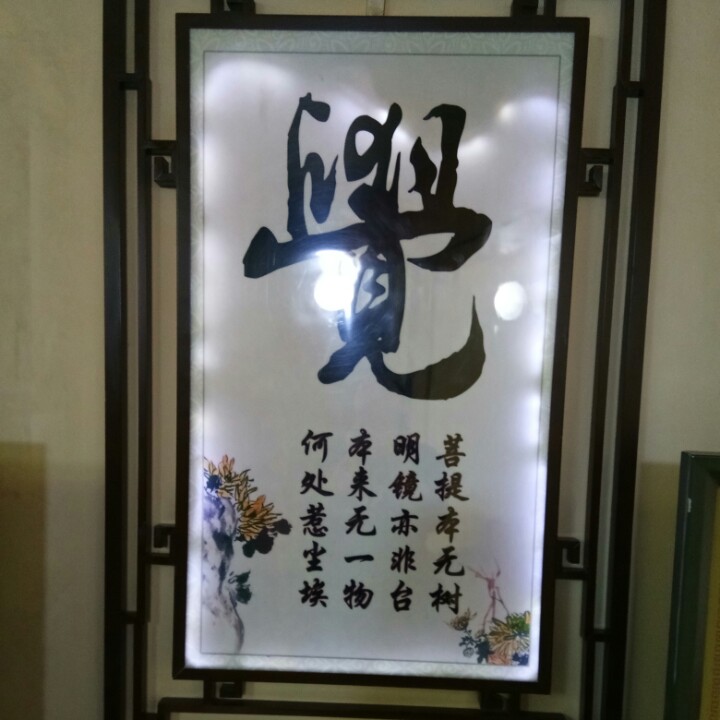 覺
菩提本无树
明镜亦非台
本来无一物
何处惹尘埃